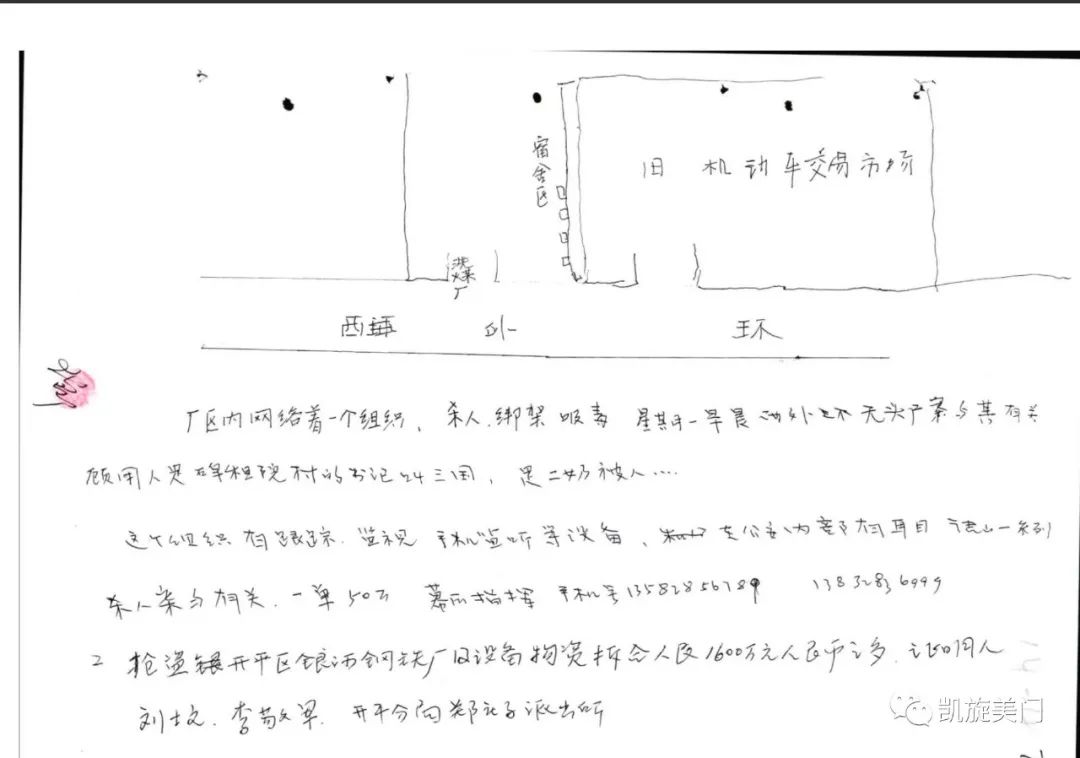 宿舍区
旧 机动车交易市场
煤厂
西 外 环
厂区内网络着一个组织，杀人.绑架 吸毒 星期一早晨 西外环 无头尸案与其有关
顾用人是 村的书记 三国，是二奶被人....
这个组织有跟踪.监视 手机监听等设备、在公安内部有耳目 唐山一系列
杀人案与有关.一单50万 幕后指挥 手机号13582856789 13832836999
2 抢盗 开平区银河钢铁厂及设备物资折合人民1600万元人民币之多.证明人
刘士文.李 开平分局郑庄子派出所
凯旋美门